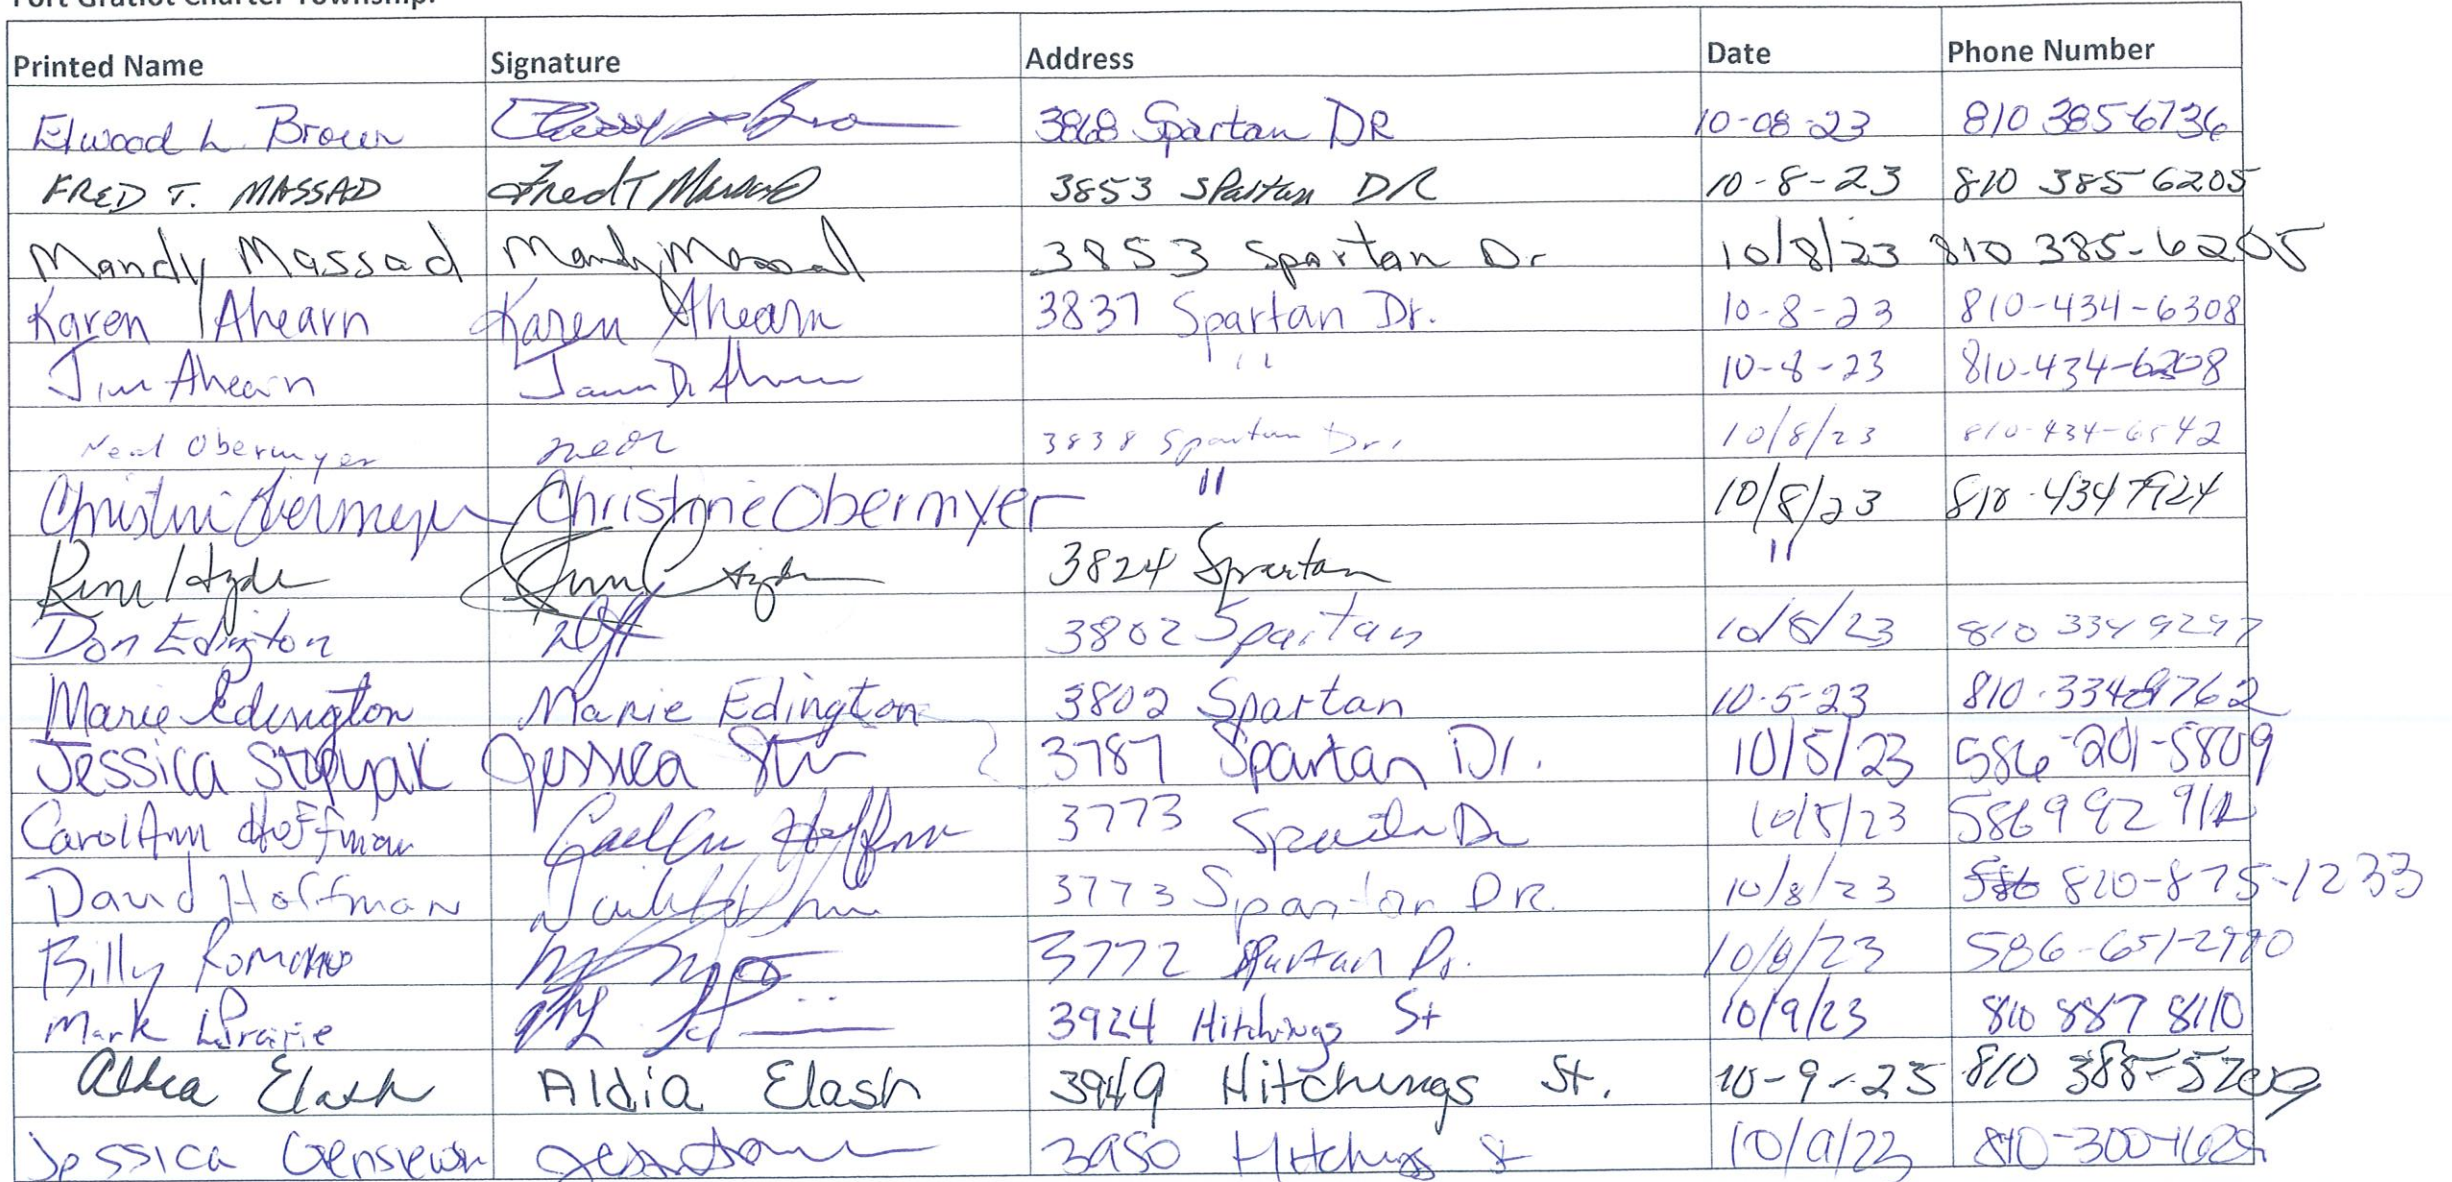 Fort Gratiot Charter Township.
Printed Name Signature Address Date Phone Number
Elwood L. Brown 3868 Spartan DR 10-08-23 810 385 6736
FRED T. MASSAD Fred T Massad 3853 Spartan DR 10-8-23 810 385 6205
Mandy Massad Mandy Massad 3853 Spartan Dr 10/8/23 810 385-6205
Karen Ahearn Karen Ahearn 3837 Spartan Dr. 10-8-23 810-434-6308
Jim Ahearn James D. Ahearn " 10-8-23 810-434-6208
Neal Obermyer neal 3838 Spartan Dr. 10/8/23 810-434-6542
Christine Obermyer Christine Obermyer " 10/8/23 810-434 7924
Kim Hyde 3824 Spartan "
Don Edington 3802 Spartan 10/8/23 810 334 9297
Marie Edington Marie Edington 3802 Spartan 10-5-23 810-334-9762
Jessica Jessica 3787 Spartan Dr. 10/5/23 586-201-5809
CarolAnn Hoffman 3773 Spartan Dr 10/5/23 586 992
David Hoffman 3773 Spartan DR. 10/8/23 810-875-1233
Billy Romano 3772 Spartan Dr. 10/8/23 586-651-2990
Mark LaPrairie 3924 Hitchings St 10/9/23 810 887 8110
Aldia Elash Aldia Elash 3949 Hitchings St. 10-9-23 810 385-5209
Jessica 3950 Hitchings St 10/9/23 810-300-1628